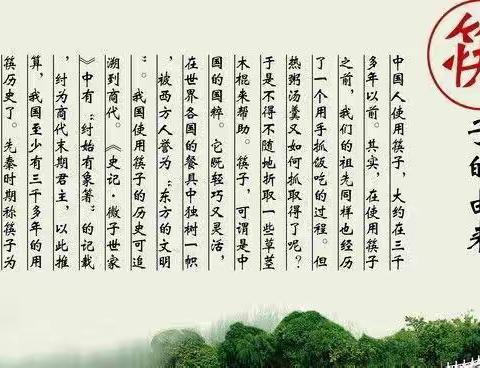 筷子的由来
中国人使用筷子，大约在三千
多年以前。其实，在使用筷子
之前，我们的祖先同样也经历
了一个用手抓饭吃的过程。但
热粥汤羹又如何抓取得了呢？
于是不得不随地折取一些草茎
木棍来帮助。筷子，可谓是中
国的国粹。它既轻巧又灵活，
在世界各国的餐具中独树一帜
，被西方人誉为“东方的文明
”。我国使用筷子的历史可追
溯到商代。《史记·微子世家
》中有“纣始有象箸”的记载
，纣为商代末期君主，以此推
算，我国至少有三千多年的用
筷历史了。先秦时期称筷子为